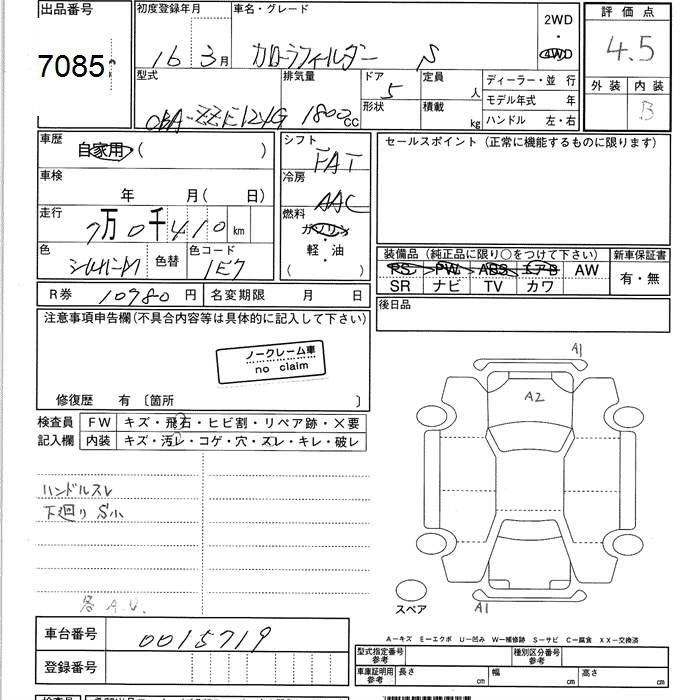 出品番号 初度登録年月 車名・グレード 2WD 評価点
7085 16 3月 カローラフィールダー S 4WD 4.5
型式 排気量 ドア 5 定員 人 ディーラー・並 行 外装 内装
CBA-ZZE124G 1800cc 形状 積載 kg モデル年式 年 B
ハンドル 左・右
車歴 自家用 ( ) シフト FAT セールスポイント (正常に機能するものに限ります)
車検 年 月( 日) 冷房 AAC
走行 7万0千410km 燃料 ガソリン
色 シルバーM 色替 色コード 1E7 軽・油
( )
装備品 (純正品に限り○をつけて下さい) 新車保証書
PS PW ABS エアB AW 有・無
SR ナビ TV カワ
R券 10980円 名変期限 月 日 後日品
注意事項申告欄(不具合内容等は具体的に記入して下さい)
ノークレーム車
no claim
修復歴 有 〔箇所 〕
検査員 FW キズ・飛石・ヒビ割・リペア跡・×要
記入欄 内装 キズ・汚レ・コゲ・穴・スレ・キレ・破レ
A1
A2
ハンドルスレ
下廻り S小
各 A.U.
スペア
A1
車台番号 0015719
A－キズ E－エクボ U－凹み W－補修跡 S－サビ C－腐食 XX－交換済
登録番号 型式指定番号 参考 種別区分番号 参考
車庫証明用 参考 長さ cm 幅 cm 高さ cm